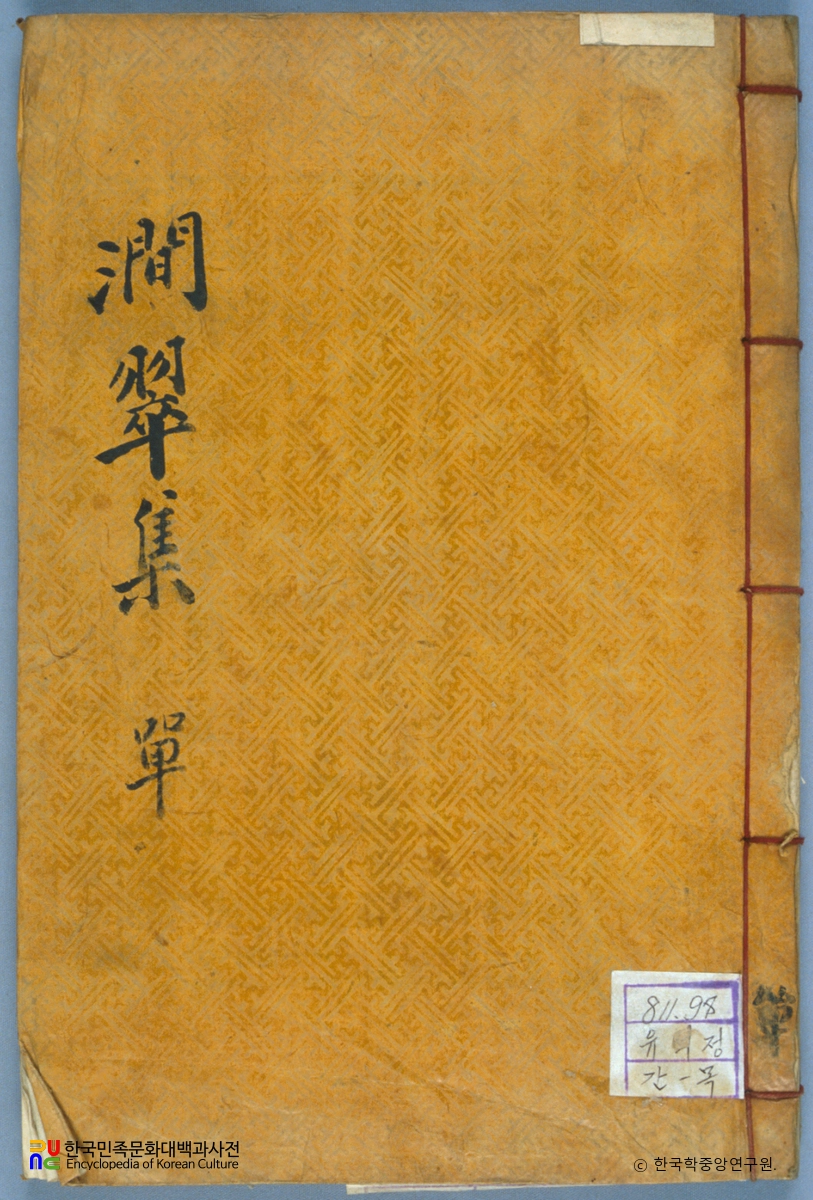 澗翠集 單
811.98
유 정
간-목
單
한국민족문화대백과사전
Encyclopedia of Korean Culture
© 한국학중앙연구원.